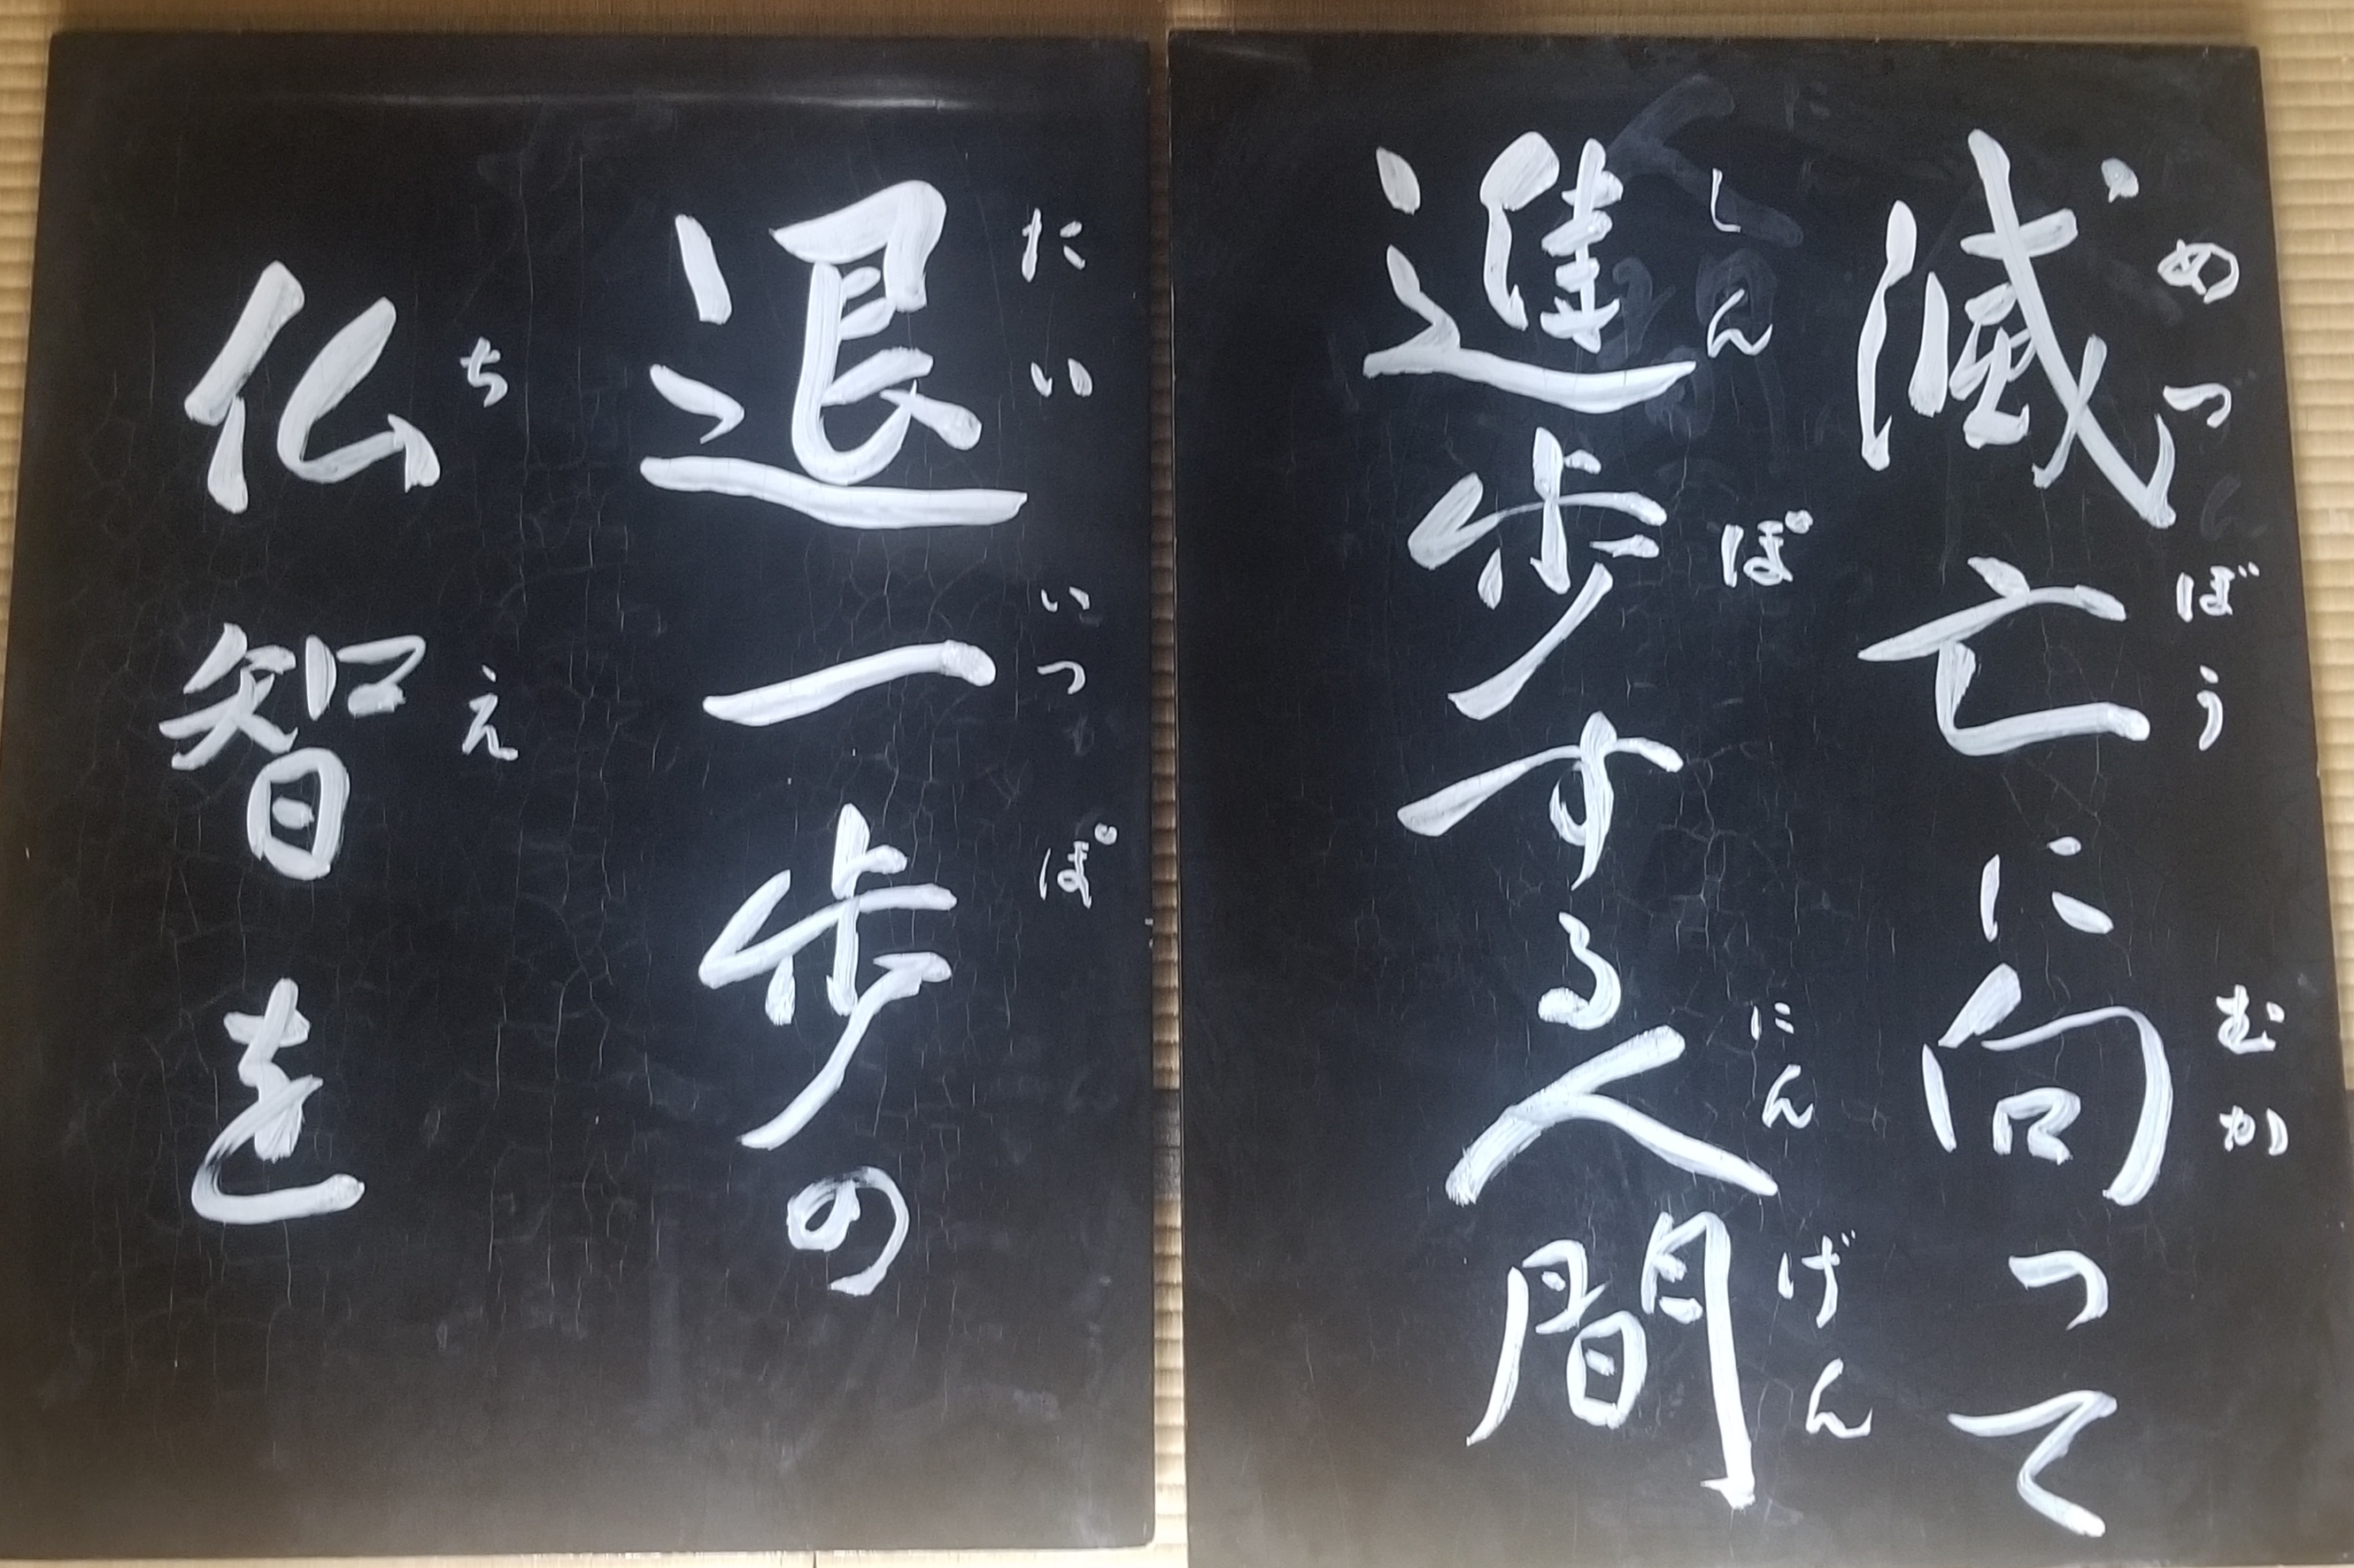 滅亡に向って
めつぼう むか
進歩する人間
しんぽ にんげん
退一歩の
たいいっぽ
仏智を
ちえ